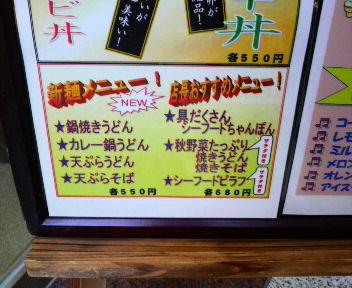 ビ丼
いが
美味い！
品！
丼
各550円
新麺メニュー！
NEW
★鍋焼きうどん
★カレー鍋うどん
★天ぷらうどん
★天ぷらそば
各550円
店長おすすめメニュー！
★具だくさん
シーフードちゃんぽん
★秋野菜たっぷり
焼きうどん
焼きそば
★シーフードピラフ
サラダ付き
サラダ付き
各680円
コー
レモ
ミル
メロン
オレン
アイス